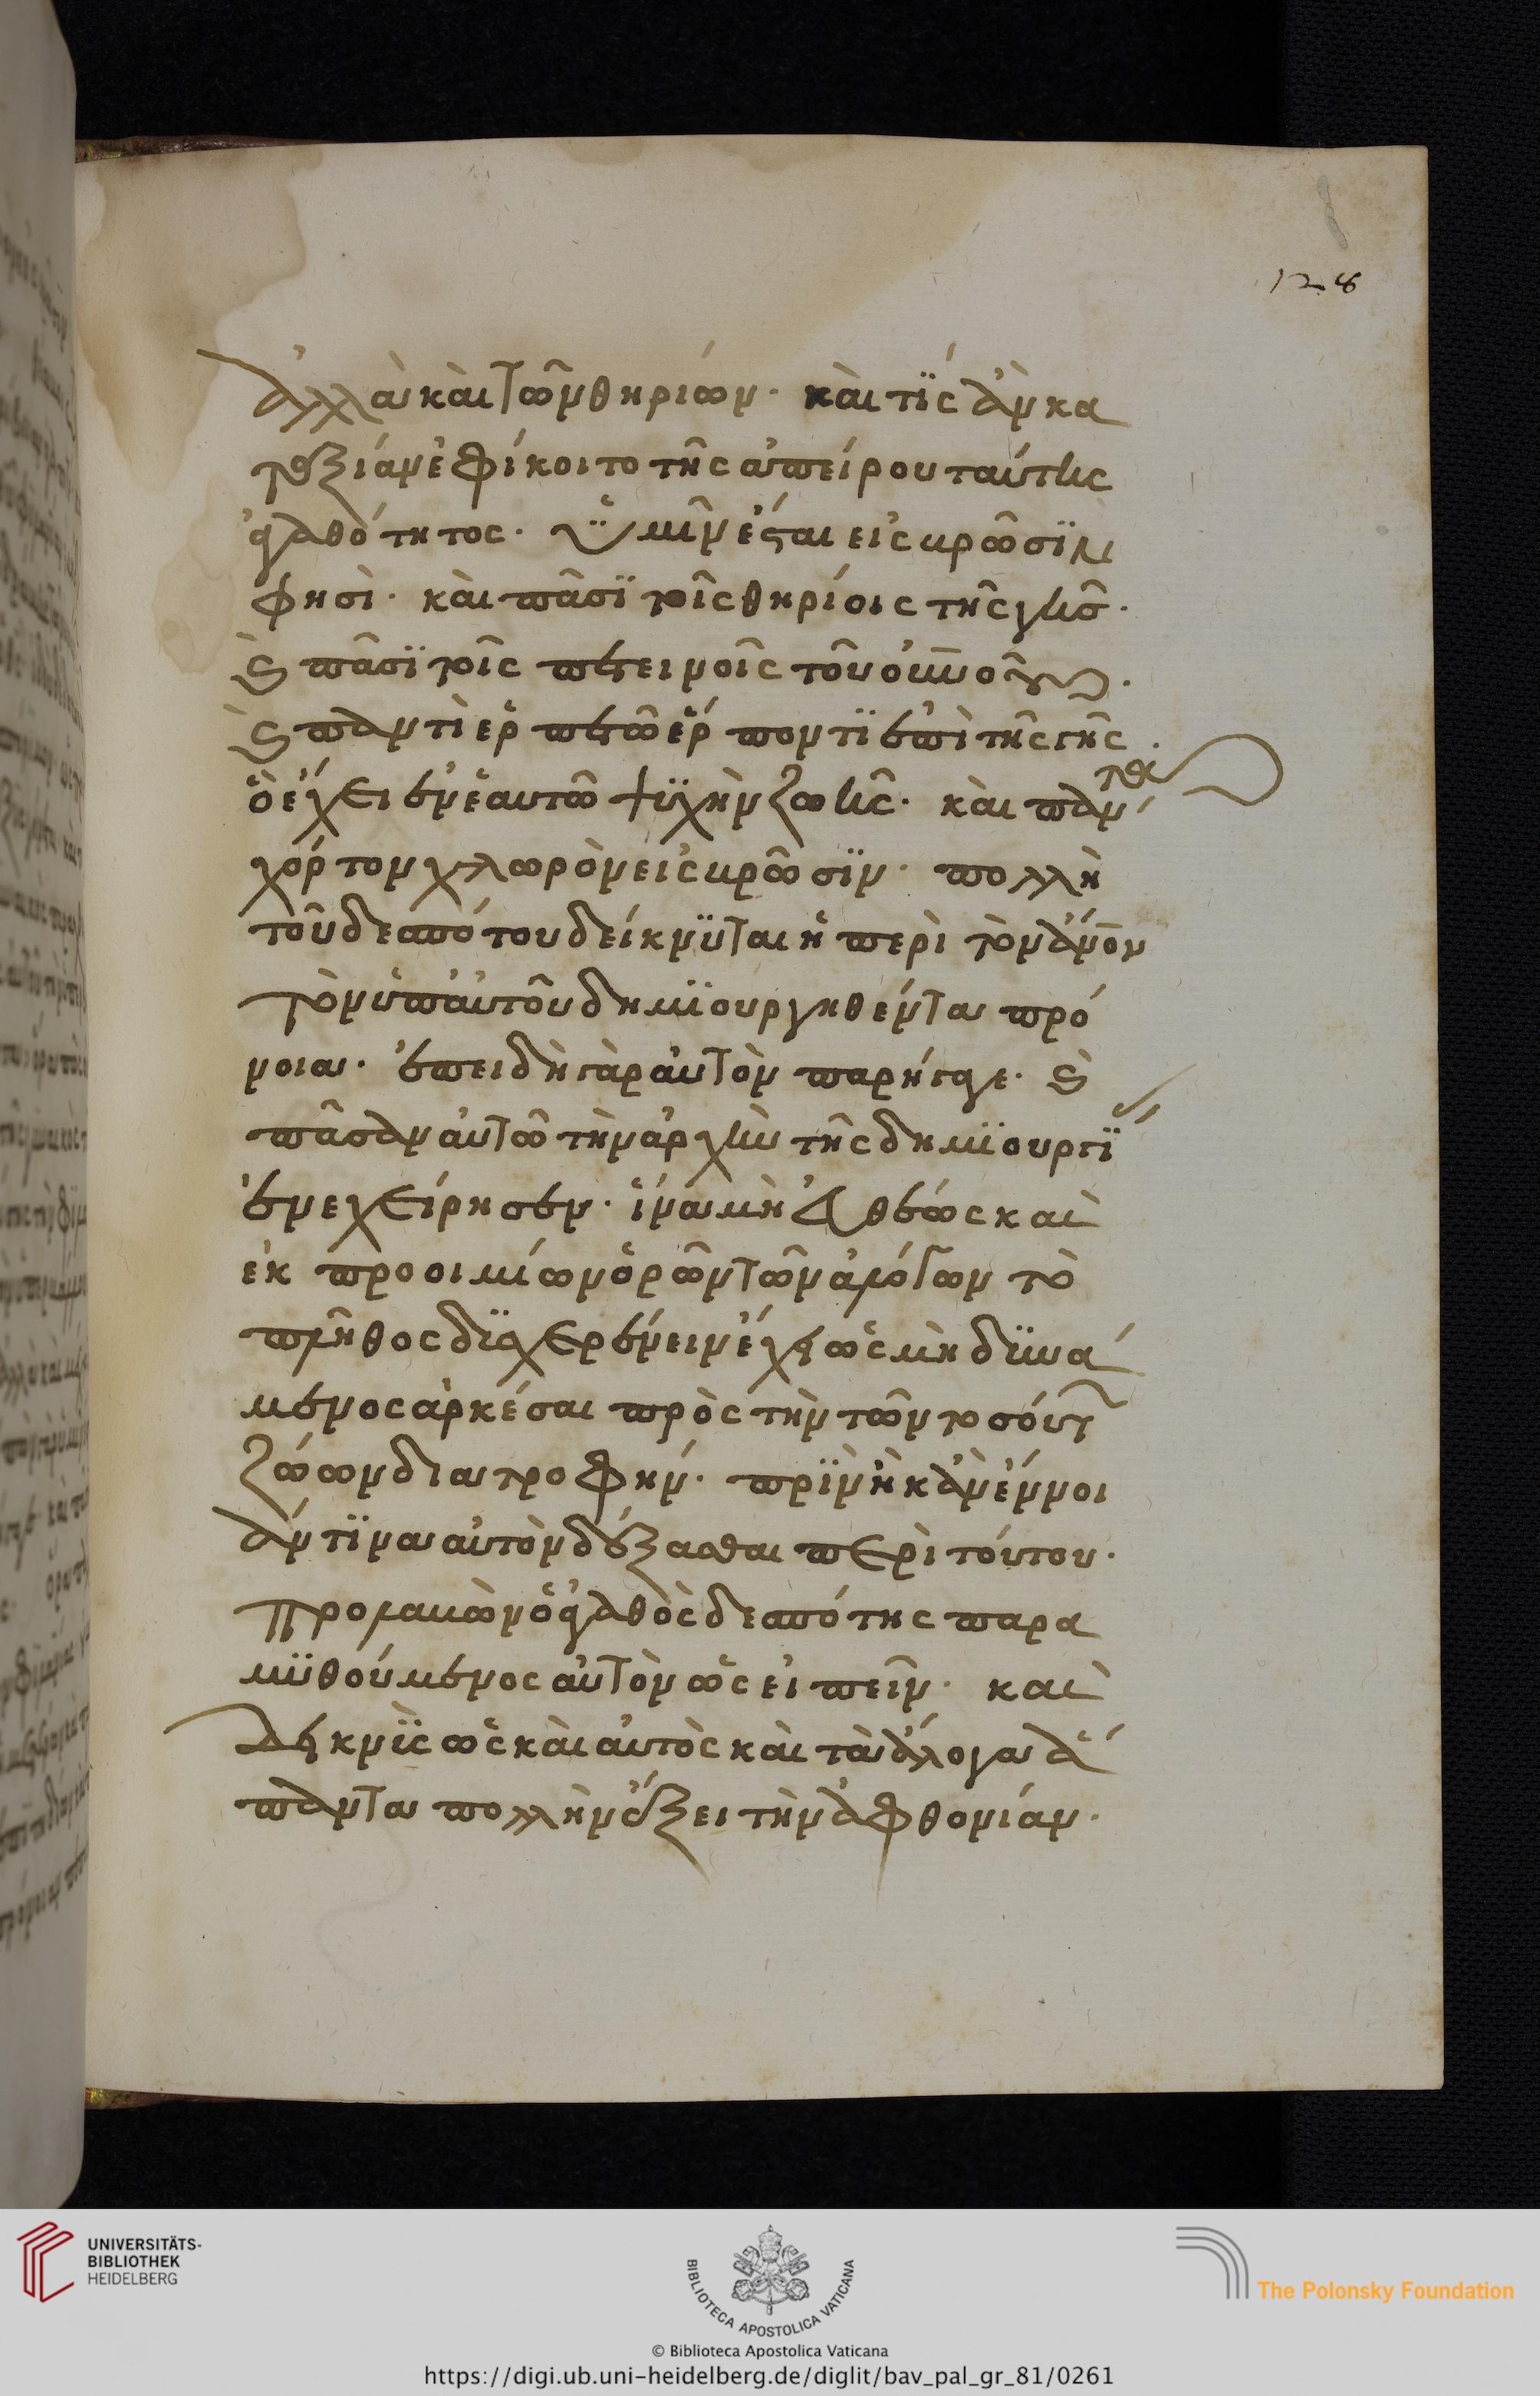 128
ἀλλὰ καὶ τῶν θηρίων· καὶ τίς ἂν κα
ταξίαν ἐφίκοιτο τῆς ἀπείρου ταύτης
ἀγαθότητος. ὑμῖν ἔσται εἰς βρῶσϊν
φησὶ· καὶ πᾶσϊ τοῖς θηρίοις τῆς γῆς·
καὶ πᾶσϊ τοῖς πετεινοῖς τοῦ οὐνοῦ.
καὶ παντὶ ἑρπετῶ ἕρποντϊ ἐπὶ τῆς γῆς.
ὃ ἔχει ἐν ἑαυτῶ ψϋχὴν ζωῆς. καὶ πάντα
χόρτον χλωρὸν εἰς βρῶσϊν· πολλὴ
τοῦ δεσπότου δείκνϋται ἡ περὶ τὸν ἄνον
τὸν ὑπ αὐτοῦ δημϊουργηθέντα πρό
νοια. ἐπειδὴ γὰρ αὐτὸν παρήγαγε. καὶ
πᾶσαν αὐτῶ τὴν ἀρχὴν τῆς δημϊουργΐ
ἐνεχείρησεν. ἵνα μὴ εὐθέως καὶ
ἐκ προοιμίων ὁρῶν τῶν ἀλόγων τὸ
πλῆθος δϋσχεραίνειν ἔχη ὡς μὴ δϋνά
μενος ἀρκέσαι πρὸς τὴν τῶν τοσούτ
ζώων διατροφήν. πρϊν ἢ κἂν ἔννοι
άν τϊνα αὐτὸν δέξασθαι περὶ τούτου.
προλαβὼν ὁ ἀγαθὸς δεσπότης παρα
μϋθούμενος αὐτὸν ὡς εἰπεῖν. καὶ
δεικνῢς ὡς καὶ αὐτὸς καὶ τὰ ἄλογα ἅ
παντα πολλὴν ἕξει τὴν ἀφθονίαν.
UNIVERSITÄTS-
BIBLIOTHEK
HEIDELBERG
BIBLIOTECA APOSTOLICA VATICANA
The Polonsky Foundation
© Biblioteca Apostolica Vaticana
https://digi.ub.uni-heidelberg.de/diglit/bav_pal_gr_81/0261